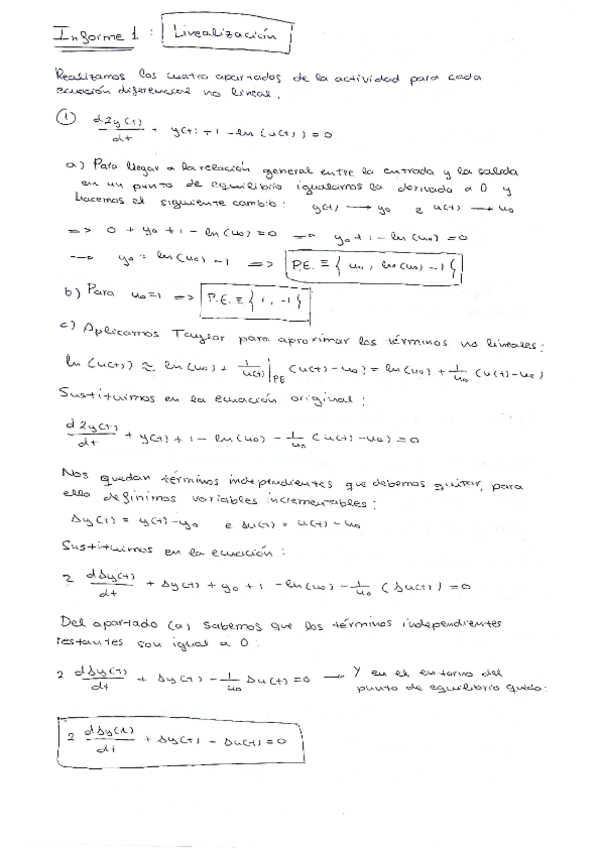 Informe 1 : Linealización
Realizamos los cuatro apartados de la actividad para cada
ecuación diferencial no lineal.
① d2y(t)/dt + y(t) + 1 - ln(u(t)) = 0
a) Para llegar a la relación general entre la entrada y la salida
en un punto de equilibrio igualamos la derivada a 0 y
hacemos el siguiente cambio: y(t) → y₀ e u(t) → u₀
=> 0 + y₀ + 1 - ln(u₀) = 0 → y₀ + 1 - ln(u₀) = 0
→ y₀ = ln(u₀) - 1 => P.E. ≡ { u₀, ln(u₀) - 1 }
b) Para u₀ = 1 => P.E. ≡ { 1, -1 }
c) Aplicamos Taylor para aproximar los términos no lineales:
ln(u(t)) ≈ ln(u₀) + 1/u(t) |PE (u(t) - u₀) = ln(u₀) + 1/u₀ (u(t) - u₀)
Sustituimos en la ecuación original:
d2y(t)/dt + y(t) + 1 - ln(u₀) - 1/u₀ (u(t) - u₀) = 0
Nos quedan términos independientes que debemos quitar, para
ello definimos variables incrementables:
Δy(t) = y(t) - y₀ e Δu(t) = u(t) - u₀
Sustituimos en la ecuación:
2 dΔy(t)/dt + Δy(t) + y₀ + 1 - ln(u₀) - 1/u₀ (Δu(t)) = 0
Del apartado (a) sabemos que los términos independientes
restantes son igual a 0:
2 dΔy(t)/dt + Δy(t) - 1/u₀ Δu(t) = 0 → Y en el entorno del
punto de equilibrio queda:
2 dΔy(t)/dt + Δy(t) - Δu(t) = 0